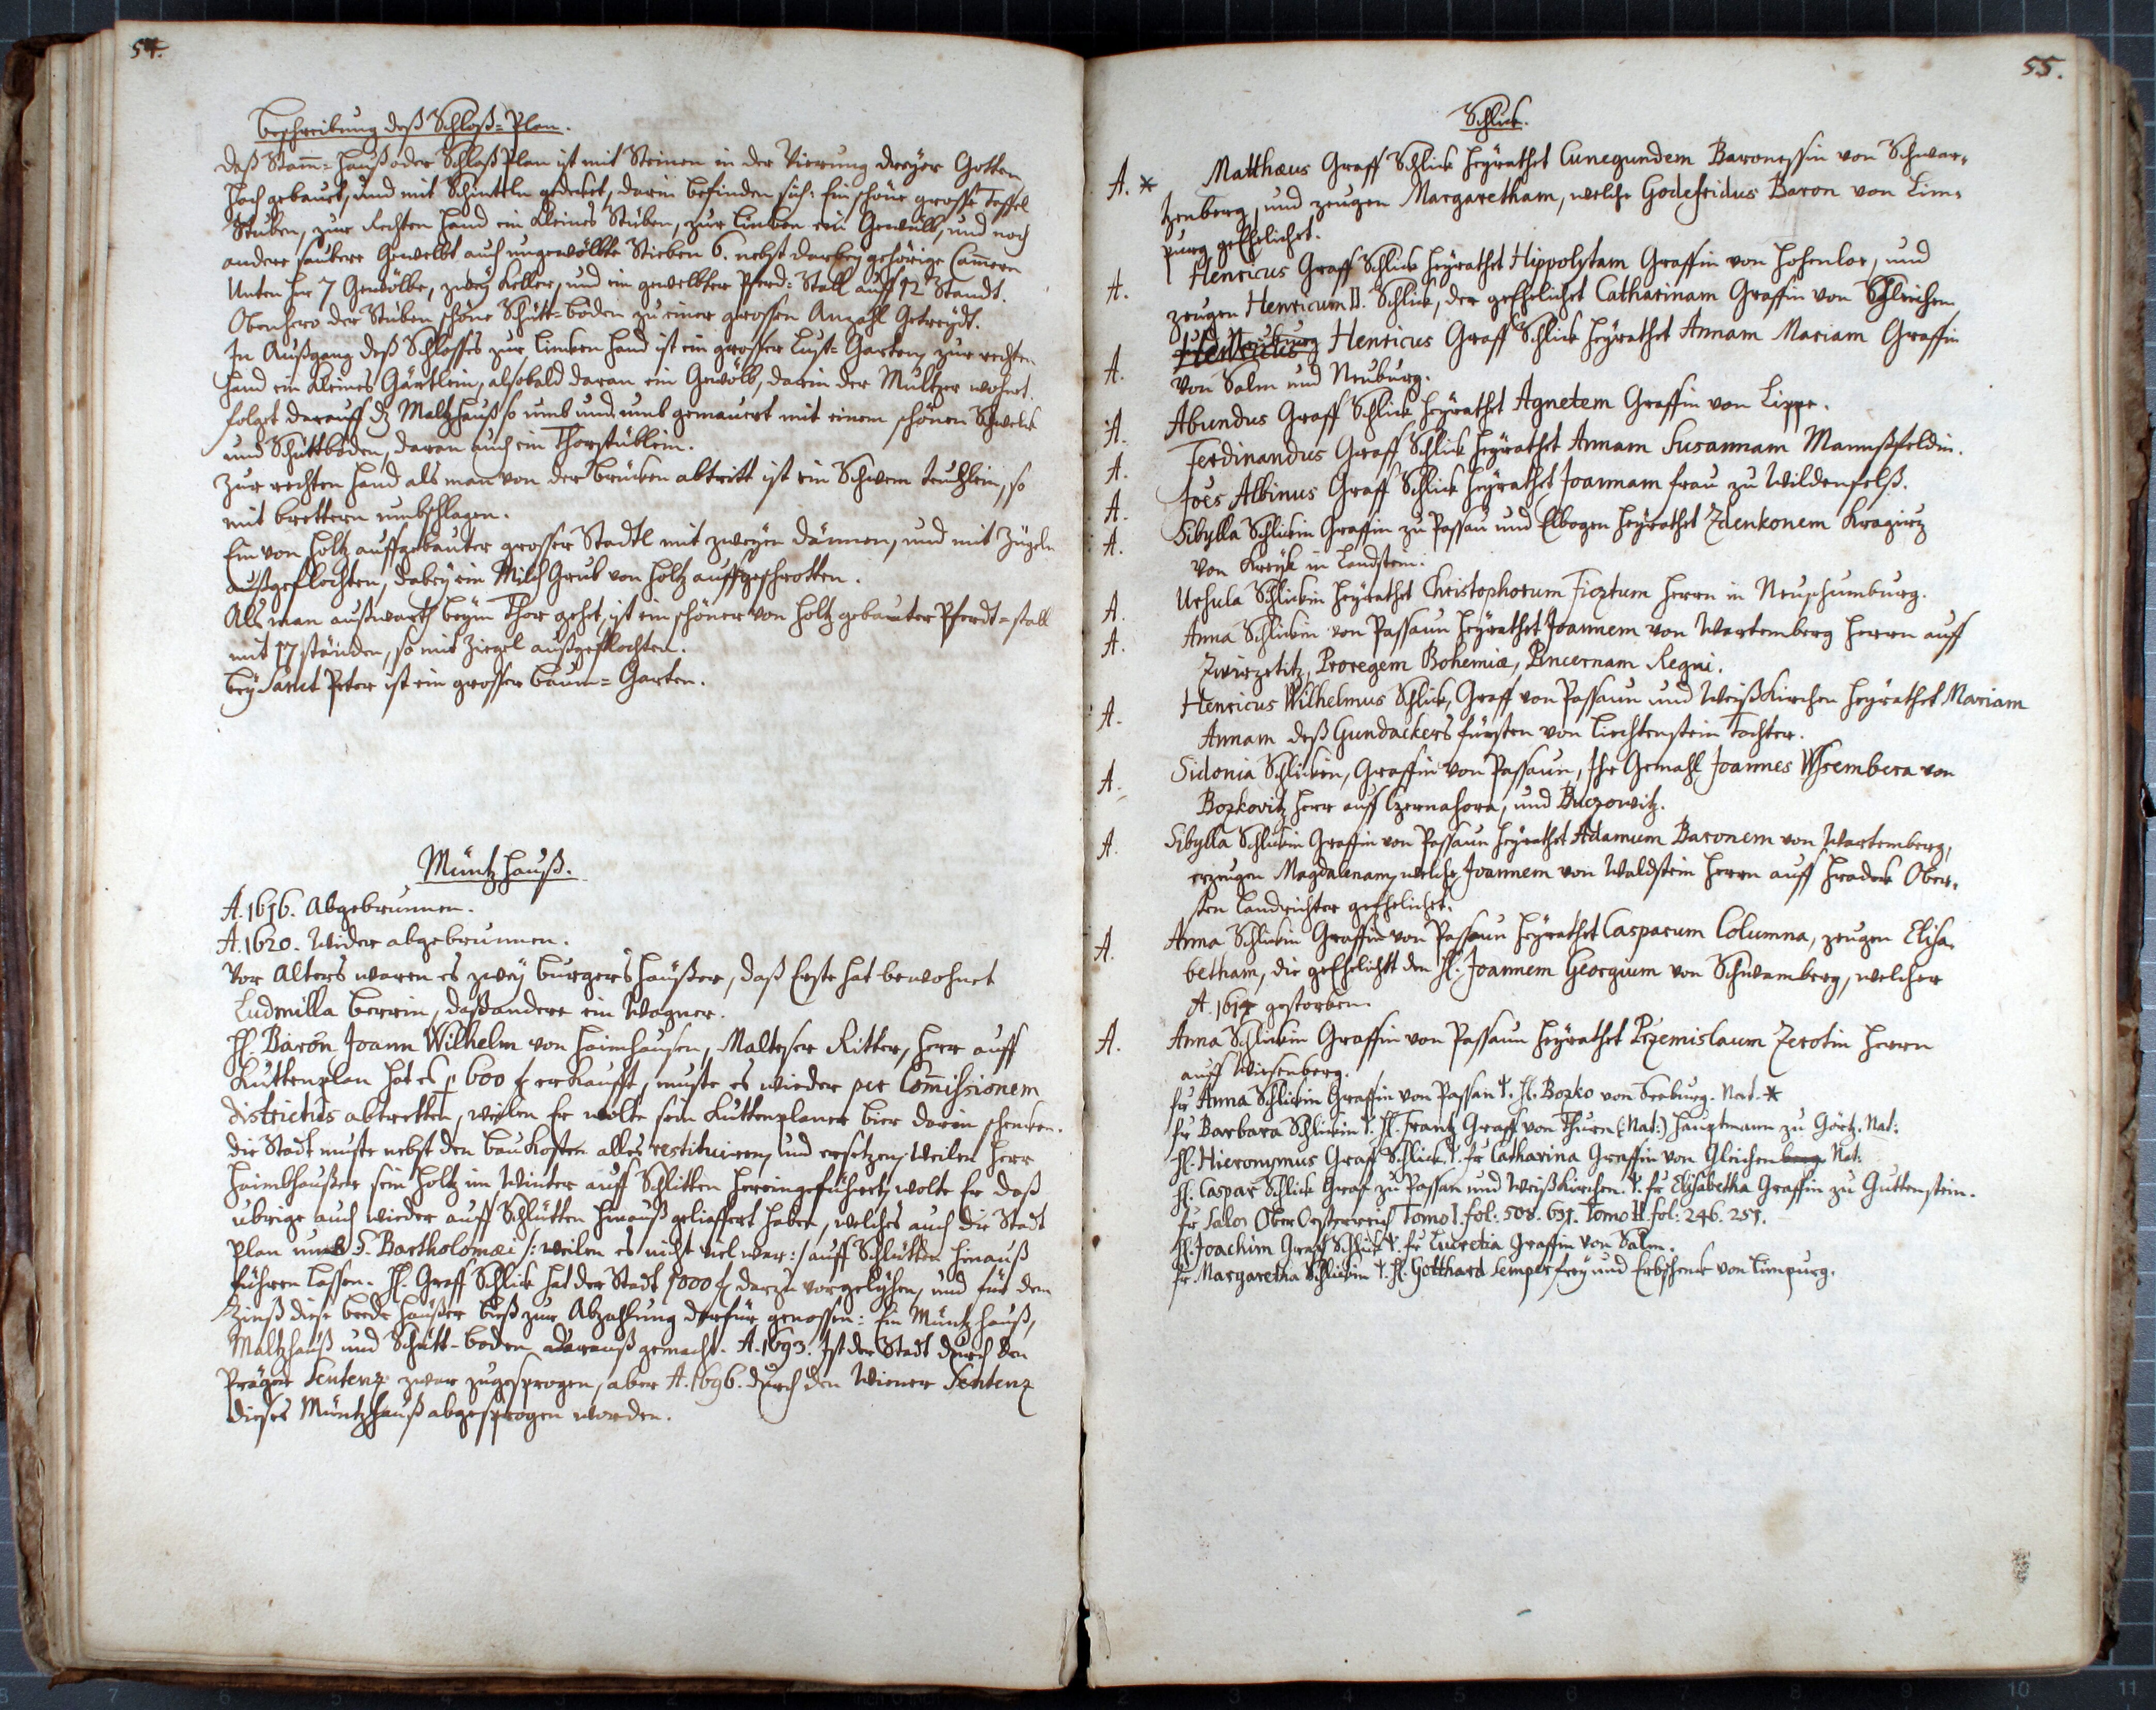 54.
Beschreibung deß Schloß-Plan.
Daß Stam̄-Hauß oder Schloß Plan ist mit Steinen in der Vierung dreyer Gotten
hoch gebauet, und mit Schinteln gedeket, darin befinden sich: Ein schöne grosse Taffel
Stuben, zur Rechten Hand ein kleines Stuben, zur Linken ein Gewülb, und noch
andere saubere Gewelbt auch ungewölbte Stieben 6. nebst darbey gehörige Cam̄ern
Unten her 7 Gewölbe, zwey Keller, und ein gewelbter Pferd-Stall auff 12 Standt.
Obenhero der Stuben schöne Schütt-böden zu einer grossen Anzahl Getreydt.
In Außgang deß Schlosses zur Linken Hand ist ein grosser Lust-Garten, zur rechten
Hand ein kleines Gärtlein, alsobald daran ein Gewölb, darin der Multzer wohnet.
folget darauff dz Maltzhauß so umb und umb gemauert mit einem schönen Schwelck
und Schüttboden, daran auch ein Thorstüblein.
Zur rechten Hand als man von der Brucken abtritt ist ein Schwem Teuchlein, so
mit Brettern umbschlagen.
Ein von Holtz auffgebauter grosser Stadtl mit zweyen Dännen, und mit Zügeln
außgeflochten, dabey ein Milch Grub von Holtz auffgeschrotten.
Als man außwarts beym Thor gehet, ist ein schöner von Holtz gebauter Pferdt-stall
mit 17 ständen, so mit Ziegel außgeflochten.
bey Sanct Peter ist ein grosser Baum-Garten.
Müntzhauß.
A. 1616. Abgebrunnen.
A. 1620. Wider abgebrunnen.
Vor Alters waren es zwey Burgers Häußer, daß Erste hat bewohnet
Ludmilla Berrin, daß andere ein Wagner.
H. Baron Joann Wilhelm von Haimhausen, Malteser Ritter, Herr auff
Kuttenplan hat es p 600 f erkaufft, muste es wieder per Com̄issionem
districtus abtretten, weilen Er wolte sein Kuttenplaner Bier darin schenken.
die Stadt muste nebst den Baukosten alles restituiren, und ersetzen, weilen Herr
Haimbhaußer sein Holtz im Winter auff Schlitten hereingeführet, wolte Er daß
übrige auch wieder auff Schlütten hinauß gelieffert haben, welches auch die Stadt
Plan umb S. Bartholomæi /: weilen es nicht viel war :/ auff Schlütten hinauß
führen lassen. H. Graff Schlick hat der Stadt 1000 f darzu vorgelyhen, und für den
Zinß diese beede Häußer biß zur Abzahlung darfür genossen: Ein Müntzhauß,
Maltzhauß und Schütt-boden darauß gemacht. A. 1693. Ist der Stadt durch den
Prager Sentenz zwar zugesprogen, aber A. 1696. durch den Wiener Sentenz
dieses Müntzhauß abgesprogen worden.
55.
Schlick.
A. * Matthæus Graff Schlick heyrathet Cunegundem Baronessin von Schwar-
zenberg, und zeugen Margaretham, welche Godefridus Baron von Lim-
purg geEhelichet.
A. Henricus Graff Schlick heyrathet Hippolytam Graffin von Hohenloe, und
zeugen Henricum II. Schlick, der geEhelichet Catharinam Graffin von Gleichen
A. Henricus Graff Schlick heyrathet Annam Mariam Graffin
von Salm und Neuburg.
A. Abundus Graff Schlick heyrathet Agnetem Graffin von Lippe.
A. Ferdinandus Graff Schlick heyrathet Annam Susannam Mannßfeldin.
A. Joēs Albinus Graff Schlick heyrathet Joannam frau zu Wildenfelß.
A. Sibylla Schlickin Graffin zu Passau und Elbogen heyrathet Zdenkonem Kragirz
von Kreyk in Landstein.
A. Ursula Schlickin heyrathet Christophorum Fictum Herrn in Neuschumburg.
A. Anna Schlickin von Passaun heyrathet Joannem von Wartemberg Herrn auff
Zwirzetitz, Proregem Bohemiæ, Pincernam Regni.
A. Henricus Wilhelmus Schlick, Graff von Passaun und Weißkirchen heyrathet Mariam
Annam deß Gundackers fürsten von Liechtenstein Tochter.
A. Sidonia Schlickin, Graffin von Passaun, Ihr Gemahl Joannes Wssembera von
Bozkovitz Herr auff Czernahora, und Buczowitz.
A. Sibylla Schlickin Graffin von Passaun heyrathet Adamum Baronem von Wartemberg,
erzeugen Magdalenam, welche Joannem von Waldstein Herrn auff Hradek Ober-
sten Landrichter geEhelichet.
A. Anna Schlickin Graffin von Passaun heyrathet Casparum Columna, zeugen Elisa-
betham, die geEhelicht den H. Joannem Georgium von Schwamberg, welcher
A. 1617 gestorben.
A. Anna Schlickin Graffin von Passaun heyrathet Przemislaum Zerotin Herrn
auff Wiesenberg.
fr Anna Schlickin Graffin von Passau †. H. Bozko von Seeburg. Nat. *
fr Barbara Schlickin †. H. Frantz Graff von Thurn (Nat:) Hauptmann zu Görtz. Nat:
H. Hieronymus Graff Schlick †. fr Catharina Graffin von Gleichen Nat:
H. Caspar Schlick Graf zu Passau und Weißkirchen. †. fr Elisabetha Graffin zu Guttenstein.
fr Salor OberOesterreich Tomo I. fol: 508. 631. Tomo II. fol: 246. 251.
H. Joachim Graff Schlick †. fr Lucretia Graffin von Salm.
fr. Margaretha Schlickin †. H. Gotthard Semper frey und Erbschenck von Limpurg.